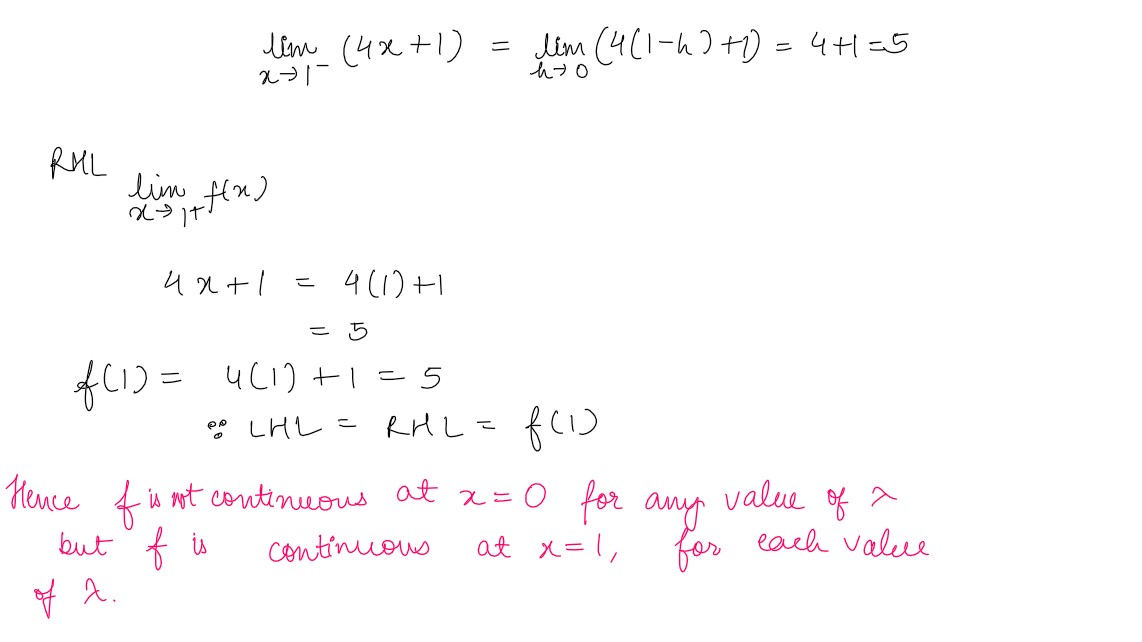 lim x→1⁻ (4x+1) = lim h→0 (4(1-h)+1) = 4+1 = 5
RHL
lim x→1+ f(x)
4x+1 = 4(1)+1
= 5
f(1) = 4(1)+1 = 5
∵ LHL = RHL = f(1)
Hence f is not continuous at x=0 for any value of λ
but f is continuous at x=1, for each value
of λ.